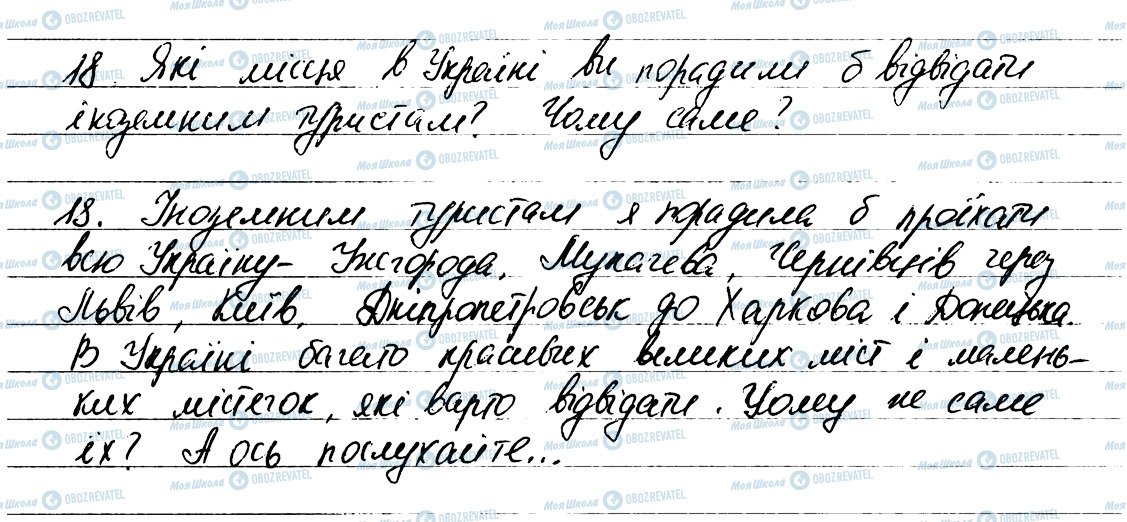 18. Які місця в Україні ви порадили б відвідати
іноземним туристам? Чому саме?
18. Іноземним туристам я порадила б проїхати
всю Україну - Ужгорода, Мукачева, Чернівців через
Львів, Київ, Дніпропетровськ до Харкова і Донецька.
В Україні багато красивих великих міст і малень-
ких містечок, які варто відвідати. Чому не саме
їх? А ось послухайте...